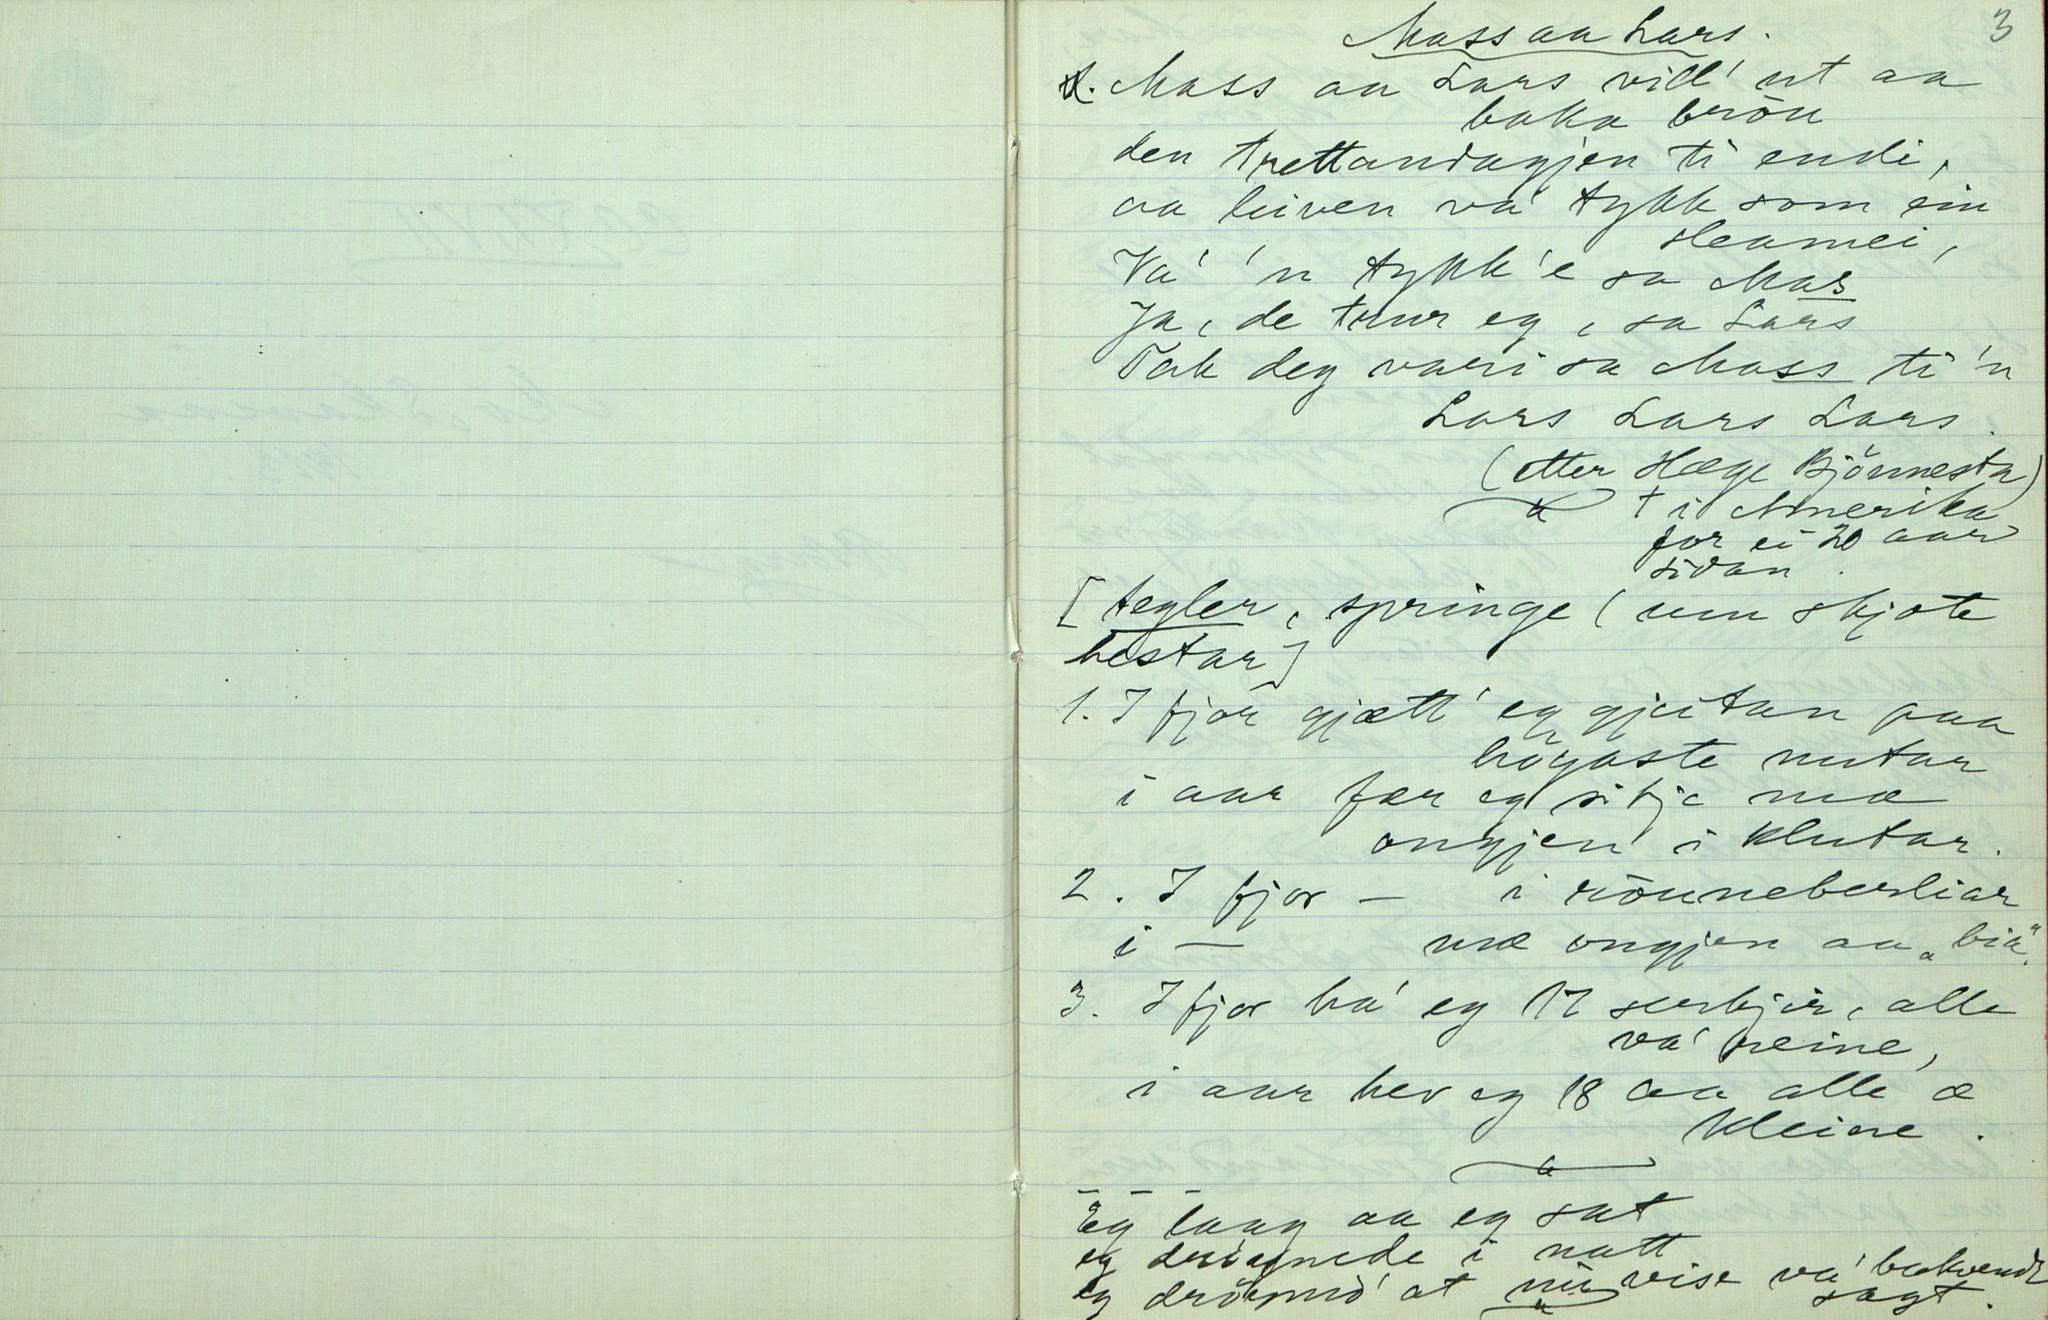 3
Mass aa Lars.
1. Mass aa Lars vill' ut aa
baka brön
den trettandagjen ti endi,
aa leiven va' tykk som ein
sleamei,
Va' 'n tykk'e sa Mas
Ja, de trur eg, sa Lars
Tak deg vari sa Mass ti 'n
Lars Lars Lars.
(etter Hæge Bjönnesta)
† i Amerika
for ei 20 aar
sidan.
[tegler, springe (um skjote
hestar]
1. I fjor gjætt' eg gjeitan paa
högaste nutar
i aar fær eg sitje mæ
ongjen i klutar.
2. I fjor — i rönneberliar
i — mæ ongjen aa "bia".
3. I fjor ha' eg 17 serkjir, alle
va' peine,
i aar hev eg 18 aa alle æ
kleine.
Eg laag aa eg sat
eg dröymde i natt
eg dröymd' at mi vise va' bakvendt
sagt.